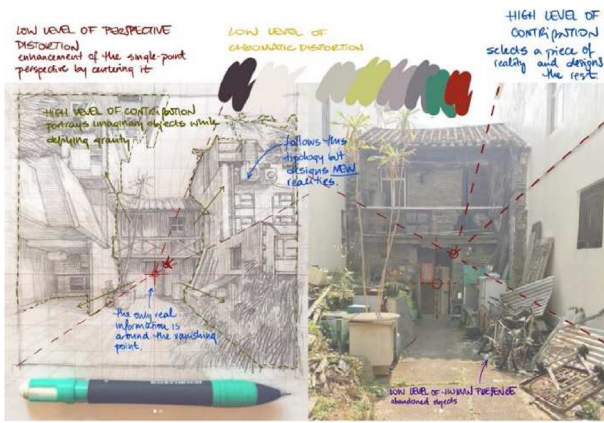 LOW LEVEL OF PERSPECTIVE
DISTORTION
enhancement of the single-point
perspective by centering it
LOW LEVEL OF
CHROMATIC DISTORTION
HIGH LEVEL OF
CONTRIBUTION
selects a piece of
reality and designs
the rest.
HIGH LEVEL OF CONTRIBUTION
portrays imaginary objects while
defying gravity.
follows this
tipology but
designs NEW
realities.
the only real
information is
around the vanishing
point.
LOW LEVEL OF HUMAN PRESENCE
abandoned objects